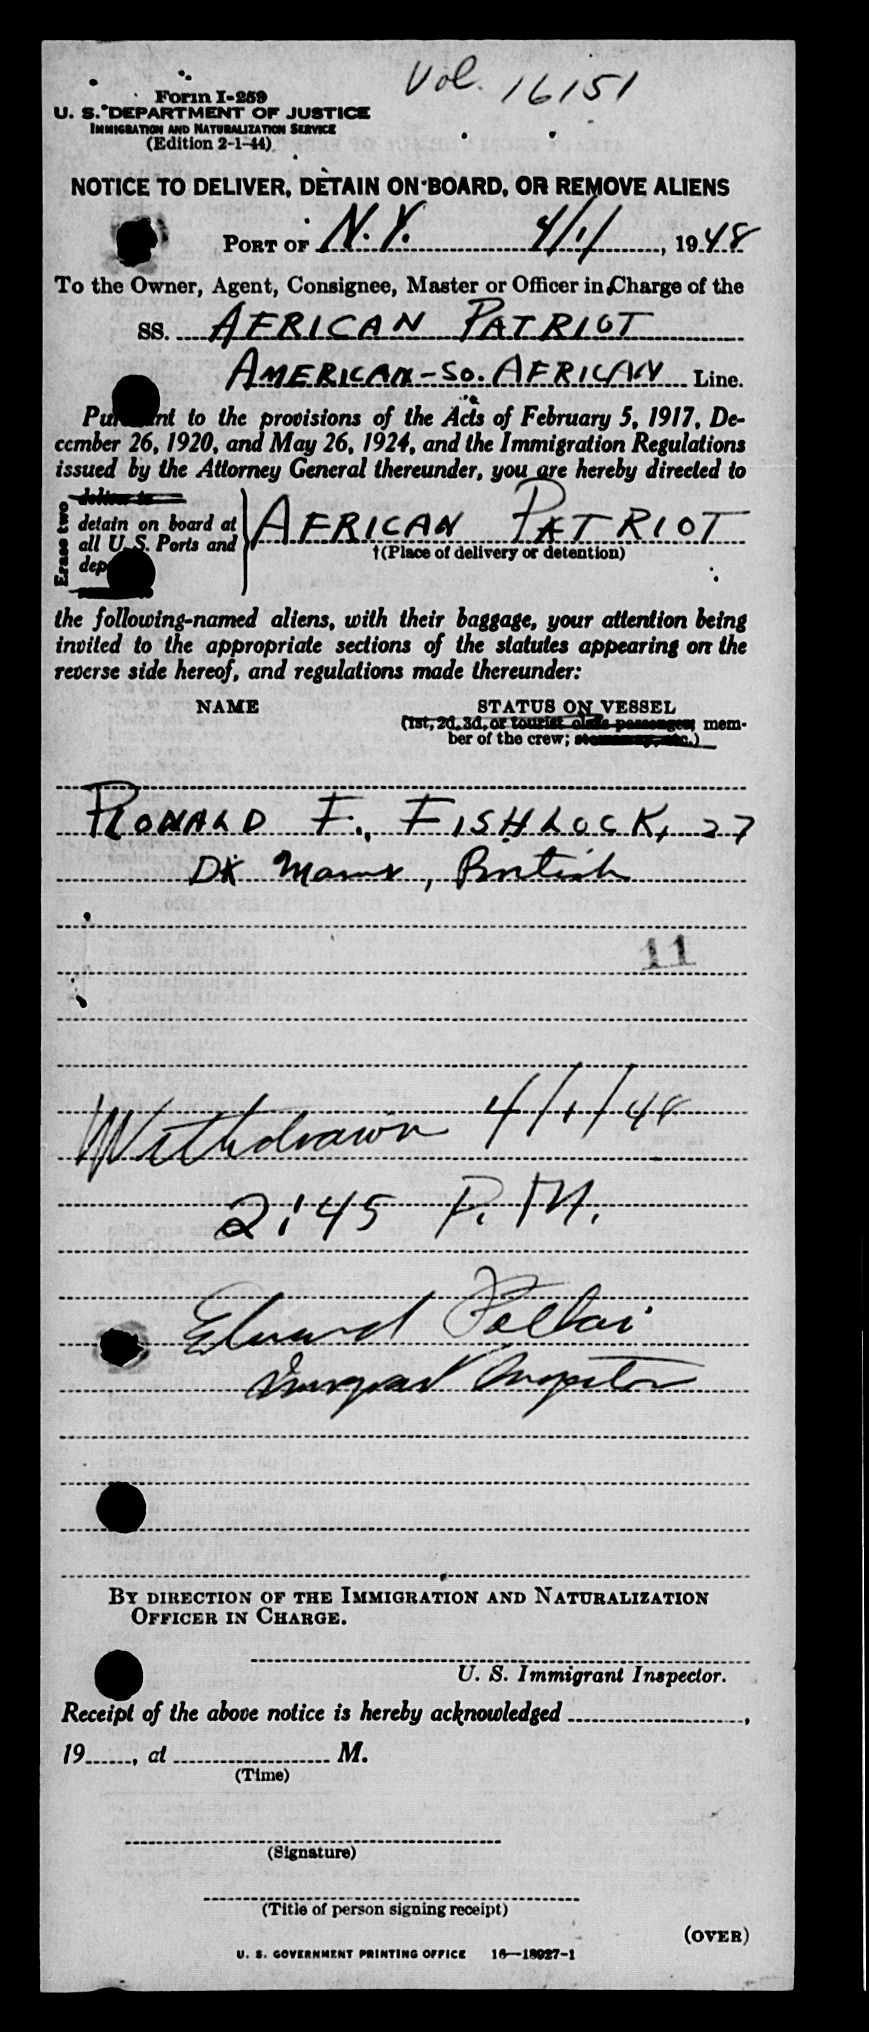 Vol. 16151
Form I-259
U. S. DEPARTMENT OF JUSTICE
IMMIGRATION AND NATURALIZATION SERVICE
(Edition 2-1-44)
NOTICE TO DELIVER, DETAIN ON BOARD, OR REMOVE ALIENS
PORT OF N. Y. 4/1/, 1948
To the Owner, Agent, Consignee, Master or Officer in Charge of the
SS. AFRICAN PATRIOT
AMERICAN-SO. AFRICAN Line.
Pursuant to the provisions of the Acts of February 5, 1917, De-
cember 26, 1920, and May 26, 1924, and the Immigration Regulations
issued by the Attorney General thereunder, you are hereby directed to
Erase two
deliver to
detain on board at
all U. S. Ports and
dep
AFRICAN PATRIOT
†(Place of delivery or detention)
the following-named aliens, with their baggage, your attention being
invited to the appropriate sections of the statutes appearing on the
reverse side hereof, and regulations made thereunder:
NAME STATUS ON VESSEL
(1st, 2d, 3d, or tourist class passenger; mem-
ber of the crew; stowaway, etc.)
RONALD F. FISHLOCK, 27
DK Mans, British
11
Withdrawn 4/1/48
2:45 P. M.
Edward
Immigrant Inspector
BY DIRECTION OF THE IMMIGRATION AND NATURALIZATION
OFFICER IN CHARGE.
U. S. Immigrant Inspector.
Receipt of the above notice is hereby acknowledged ,
19 , at M.
(Time)
(Signature)
(Title of person signing receipt)
(OVER)
U. S. GOVERNMENT PRINTING OFFICE 16—18027-1